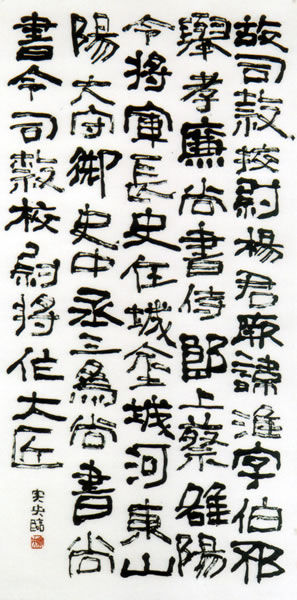 故司隸校尉楊君厥諱淮字伯邳
舉孝廉尚書侍郎上蔡雒陽
令將軍長史任城金城河東山
陽大守御史中丞三為尚書尚
書令司隸校尉將作大匠
臨